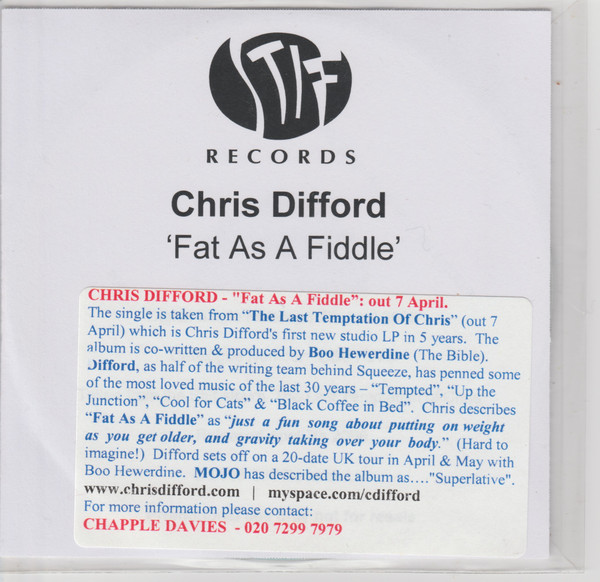 STIFF
RECORDS
Chris Difford
‘Fat As A Fiddle’
CHRIS DIFFORD - "Fat As A Fiddle”: out 7 April.
The single is taken from “The Last Temptation Of Chris” (out 7
April) which is Chris Difford's first new studio LP in 5 years. The
album is co-written & produced by Boo Hewerdine (The Bible).
Difford, as half of the writing team behind Squeeze, has penned some
of the most loved music of the last 30 years – “Tempted”, “Up the
Junction”, “Cool for Cats” & “Black Coffee in Bed”. Chris describes
“Fat As A Fiddle” as “just a fun song about putting on weight
as you get older, and gravity taking over your body.” (Hard to
imagine!) Difford sets off on a 20-date UK tour in April & May with
Boo Hewerdine. MOJO has described the album as…."Superlative".
www.chrisdifford.com | myspace.com/cdifford
For more information please contact:
CHAPPLE DAVIES - 020 7299 7979